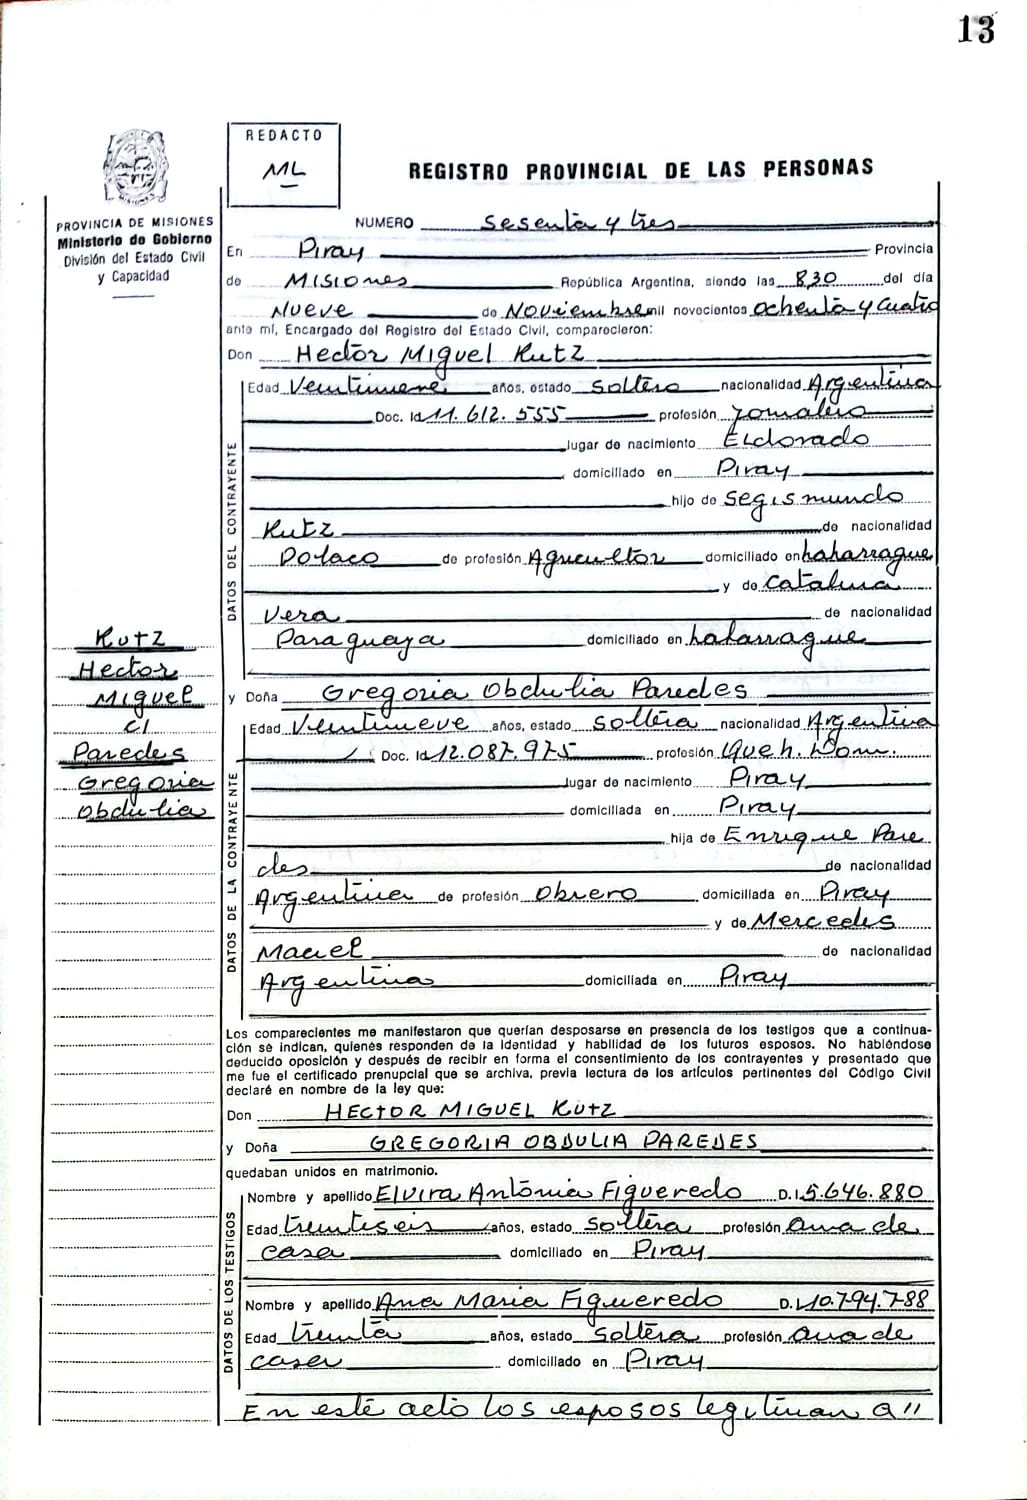 13
REDACTO
ML
REGISTRO PROVINCIAL DE LAS PERSONAS
PROVINCIA DE MISIONES
Ministerio de Gobierno
División del Estado Civil
y Capacidad
NUMERO Sesenta y tres
En Piray Provincia
de Misiones República Argentina, siendo las 830 del día
Nueve de Noviembre mil novecientos ochenta y cuatro
ante mí, Encargado del Registro del Estado Civil, comparecieron:
Don Hector Miguel Kutz
DATOS DEL CONTRAYENTE
Edad Veintinueve años, estado soltero nacionalidad Argentina
Doc. Id 11.612.555 profesión Jornalero
lugar de nacimiento Eldorado
domiciliado en Piray
hijo de Segismundo
Kutz de nacionalidad
Polaco de profesión Agricultor domiciliado en
y de Catalina
Vera de nacionalidad
Paraguaya domiciliado en
Kutz
Hector
Miguel
c/
Paredes
Gregoria
Obdulia
y Doña Gregoria Obdulia Paredes
DATOS DE LA CONTRAYENTE
Edad Veintinueve años, estado soltera nacionalidad Argentina
Doc. Id 12.087.975 profesión Queh. Dom.
lugar de nacimiento Piray
domiciliada en Piray
hija de Enrique Pare
des de nacionalidad
Argentina de profesión Obrero domiciliada en Piray
y de Mercedes
Maciel de nacionalidad
Argentina domiciliada en Piray
Los comparecientes me manifestaron que querían desposarse en presencia de los testigos que a continua-
ción se indican, quienes responden de la identidad y habilidad de los futuros esposos. No habiéndose
deducido oposición y después de recibir en forma el consentimiento de los contrayentes y presentado que
me fue el certificado prenupcial que se archiva, previa lectura de los artículos pertinentes del Código Civil
declaré en nombre de la ley que:
Don HECTOR MIGUEL KUTZ
y Doña GREGORIA OBDULIA PAREDES
quedaban unidos en matrimonio.
DATOS DE LOS TESTIGOS
Nombre y apellido Elvira Antonia Figueredo D.I. 5.646.880
Edad treinteseis años, estado soltera profesión ama de
casa domiciliado en Piray
Nombre y apellido Ana Maria Figueredo D.I. 10.794.788
Edad treinta años, estado soltera profesión ama de
casa domiciliado en Piray
En este acto los esposos legitiman a //